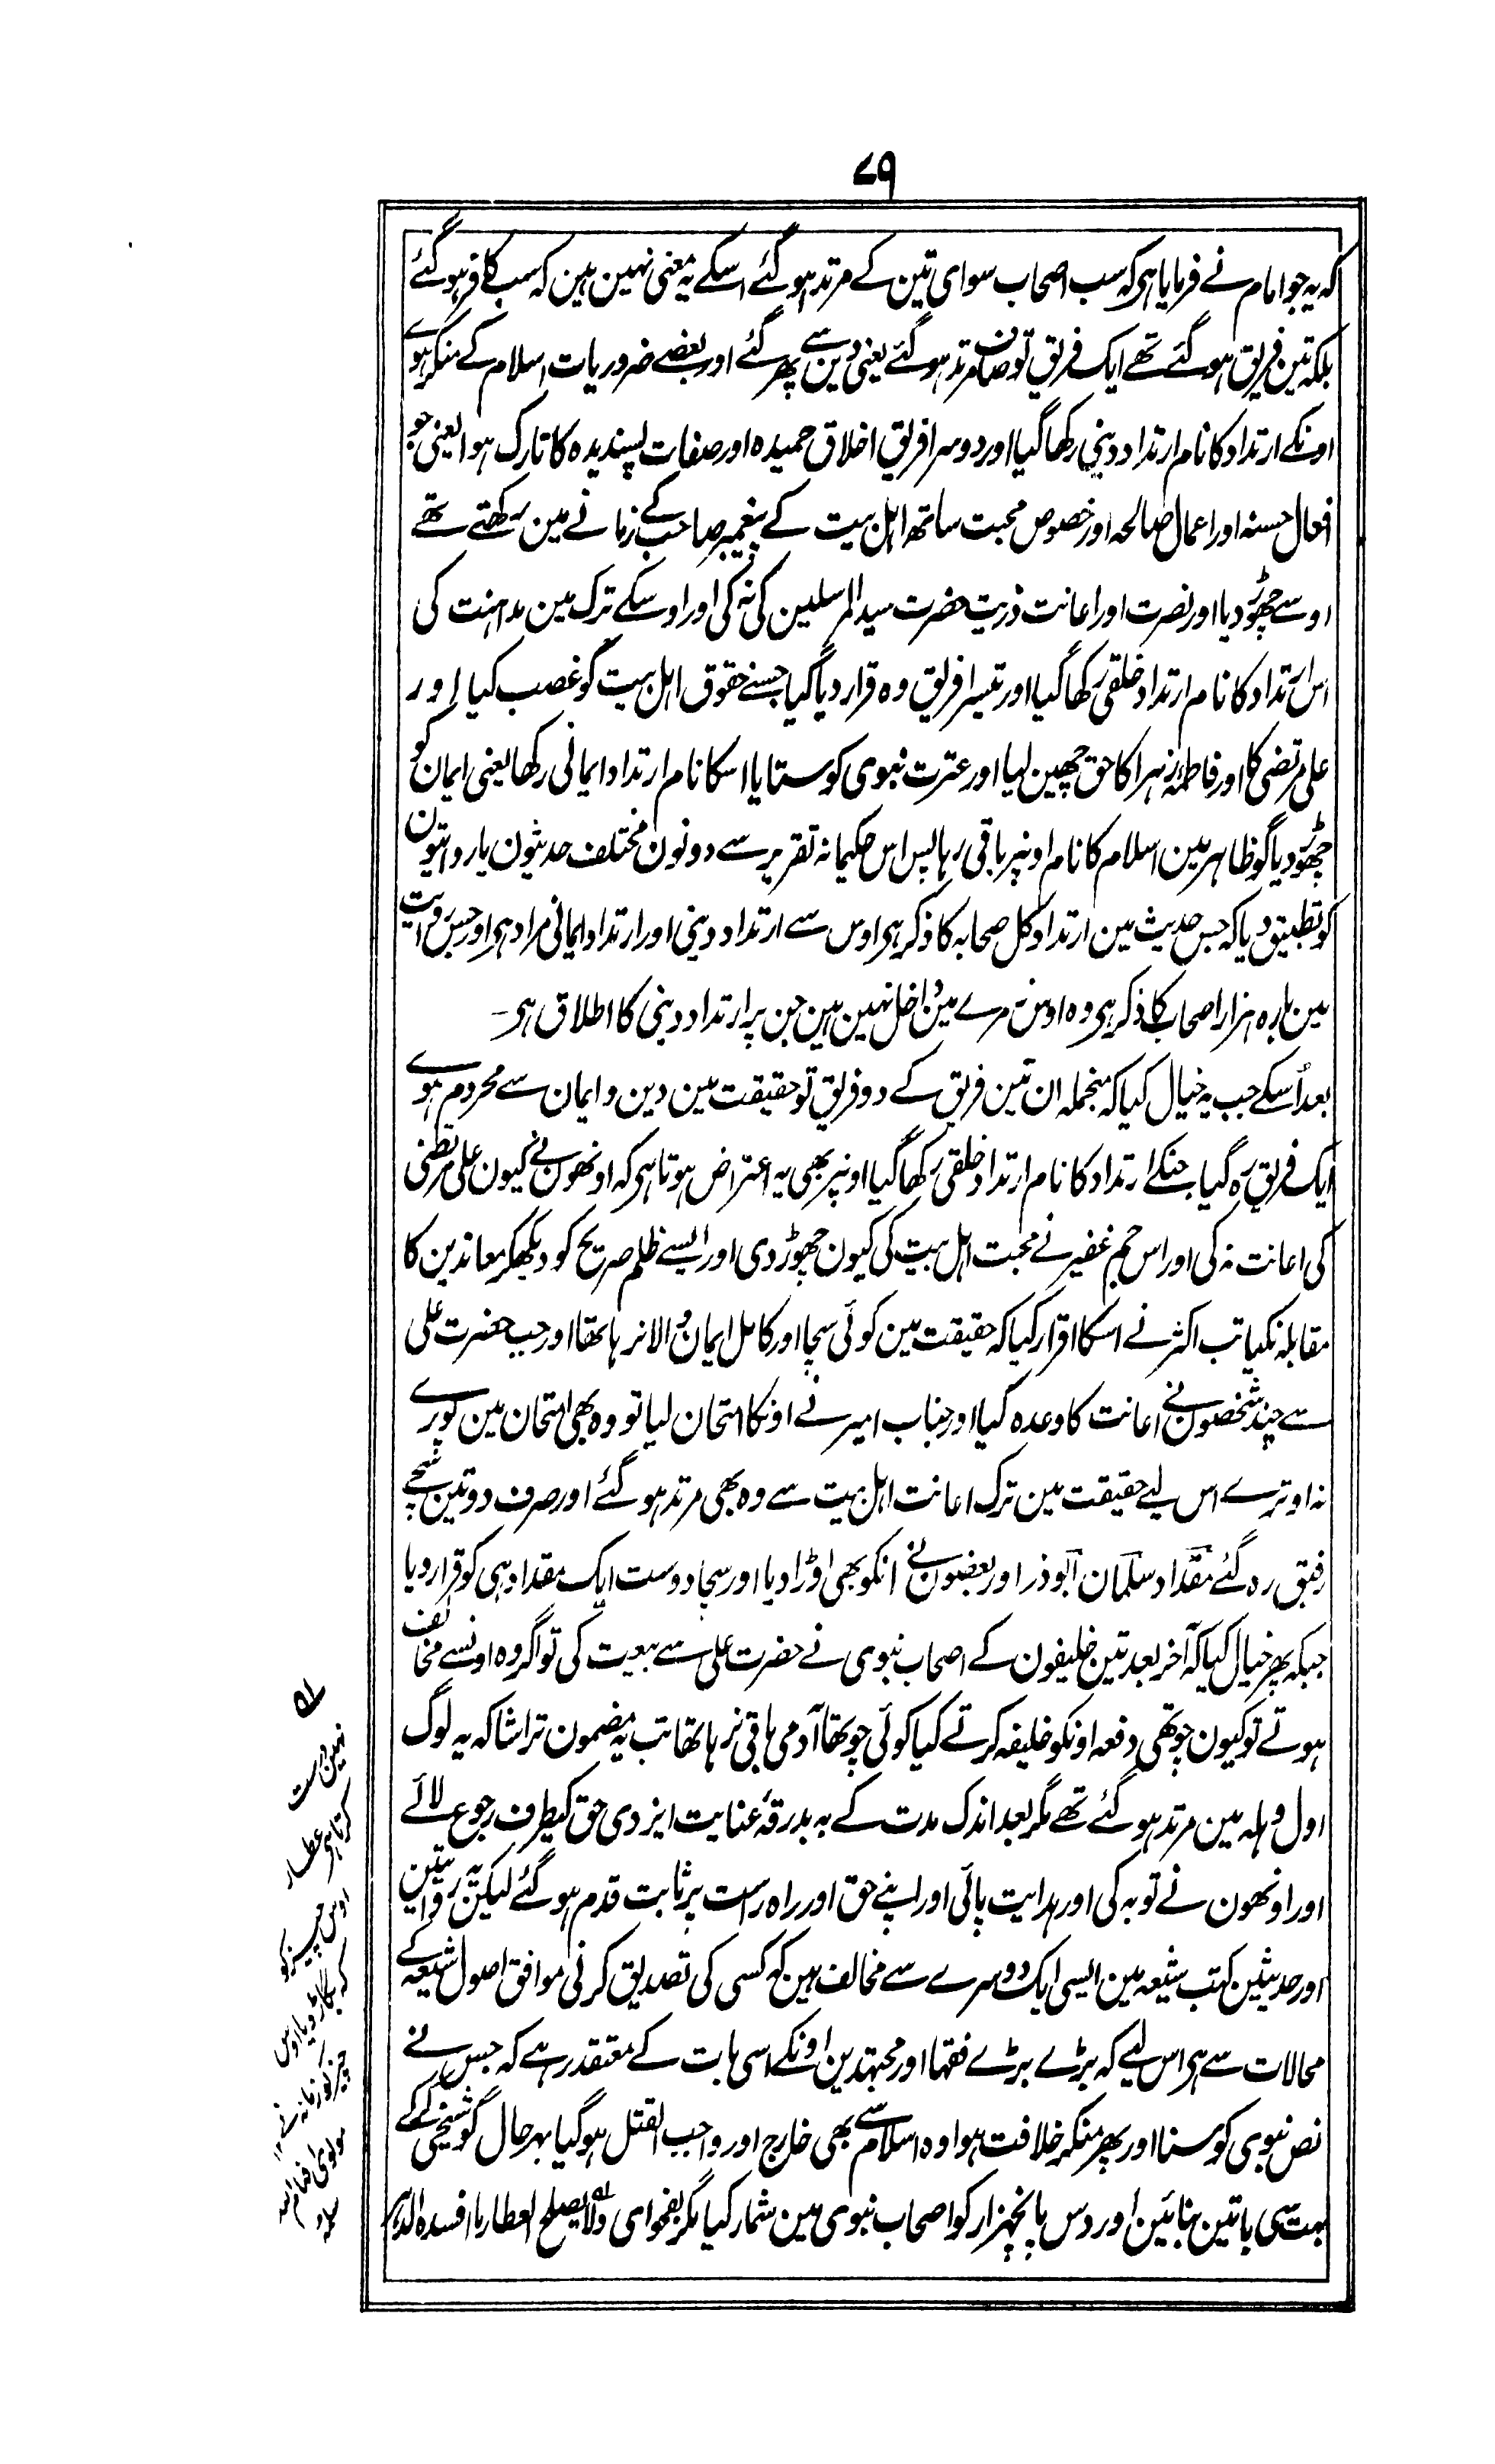 ۷۹
کہ یہ جو امام نے فرمایا ہی کہ سب اصحاب سوای تین کے مرتد ہو گئے اسکے یہ معنی نہین ہین کہ سب کافر ہو گئے
بلکہ تین فریق ہو گئے تھے ایک فریق تو صاف مرتد ہو گئے یعنی دین سے پھر گئے اور بعضے ضروریات اسلام کے منکر ہوے
اونکے ارتداد کا نام ارتداد دینی رکھا گیا اور دوسرا فریق اخلاق حمیدہ اور صفات پسندیدہ کا تارک ہوا یعنی جو
افعال حسنہ اور اعمال صالحہ اور خصوص محبت ساتھ اہل بیت کے پیغمبر صاحب کے زمانے مین رکھتے تھے
اوسے چھوڑ دیا اور نصرت اور اعانت ذریت حضرت سید المرسلین کی نہ کی اور اوسکے ترک مین مداہنت کی
اس ارتداد کا نام ارتداد خلقی رکھا گیا اور تیسرا فریق وہ قرار دیا گیا جسنے حقوق اہل بیت کو غصب کیا اور
علی مرتضی کا اور فاطمہ زہرا کا حق چھین لیا اور عترت نبوی کو ستایا اسکا نام ارتداد ایمانی رکھا یعنی ایمان کو
چھوڑ دیا گو ظاہر مین اسلام کا نام اونپر باقی رہا پس اس حکیمانہ تقریر سے دونون مختلف حدیثون یا روایتون
کو تطبیق دیا کہ جس حدیث مین ارتداد کل صحابہ کا ذکر ہی اوس سے ارتداد دینی اور ارتداد ایمانی مراد ہی اور جس روایت
مین بارہ ہزار اصحاب کا ذکر ہی وہ اوس زمرے مین داخل نہین ہین جن پر ارتداد دینی کا اطلاق ہی۔
بعد اُسکے جب یہ خیال کیا کہ منجملہ ان تین فریق کے دو فریق تو حقیقت مین دین و ایمان سے محروم ہوے
ایک فریق رہ گیا جنکے ارتداد کا نام ارتداد خلقی رکھا گیا اونپر بھی یہ اعتراض ہوتا ہی کہ اونھون نے کیون علی مرتضی
کی اعانت نہ کی اور اس جم غفیر نے محبت اہل بیت کی کیون چھوڑ دی اور ایسے ظلم صریح کو دیکھکر معاندین کا
مقابلہ نکیا تب اکثر نے اسکا اقرار کیا کہ حقیقت مین کوئی سچا اور کامل ایمان والا نرہا تھا اور جب حضرت علی
سے چند شخصون نے اعانت کا وعدہ کیا اور جناب امیر نے اونکا امتحان لیا تو وہ بھی امتحان مین پورے
نہ اوترے اس لیے حقیقت مین ترک اعانت اہل بیت سے وہ بھی مرتد ہو گئے اور صرف دو تین سچے
رفیق رہ گئے مقداد سلمان ابوذر اور بعضون نے انکو بھی اوڑا دیا اور سچا دوست ایک مقداد ہی کو قرار دیا
جبکہ پھر خیال کیا کہ آخر بعد تین خلیفون کے اصحاب نبوی نے حضرت علی سے بیعت کی تو اگر وہ اونسے مخالف
ہوتے تو کیون چوتھی دفعہ اونکو خلیفہ کرتے کیا کوئی چوتھا آدمی باقی نرہا تھا تب یہ مضمون تراشا کہ یہ لوگ
اول وہلہ مین مرتد ہو گئے تھے مگر بعد اندک مدت کے بہ بدرقۂ عنایت ایزدی حق کیطرف رجوع لائے
اور اونھون نے توبہ کی اور ہدایت پائی اور اپنے حق اور راہ راست پر ثابت قدم ہو گئے لیکن یہ روایتین
اور حدیثین کتب شیعہ مین ایسی ایک دوسرے سے مخالف ہین کہ کسی کی تصدیق کرنی موافق اصول شیعہ کے
محالات سے ہی اس لیے کہ بڑے بڑے فقہا اور مجتہدین اونکے اسی بات کے معتقد رہے کہ جس نے
نص نبوی کو سنا اور پھر منکر خلافت ہوا وہ اسلام سے بھی خارج اور واجب القتل ہو گیا بہر حال گو شیخی کرکے
بہت سی باتین بنائین اور دس پانچہزار کو اصحاب نبوی مین شمار کیا مگر بفحوای ولا یصلح العطار ما افسدہ الدہر
نہین درست
کرتا ہی عطار
اوس چیز کو
کہ بگاڑ دیا اوس
چیز کو زمانہ نے ۱۲
مولوی انعام اللہ
سلمہ